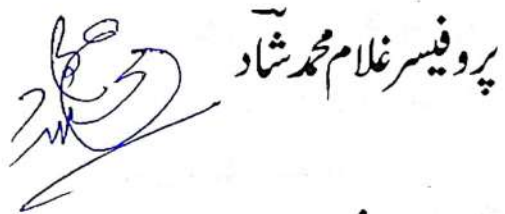 پروفیسر غلام محمد شاد